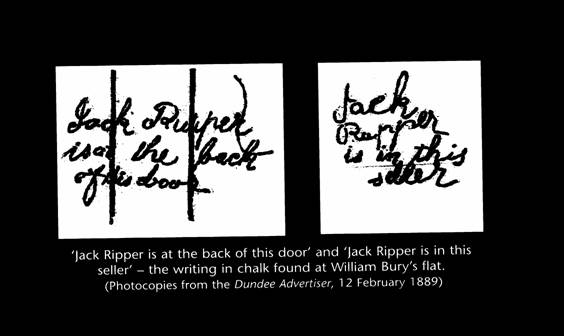 Jack Ripper
is at the back
of this door
Jack
Ripper
is in this
seller
'Jack Ripper is at the back of this door' and 'Jack Ripper is in this
seller' – the writing in chalk found at William Bury's flat.
(Photocopies from the Dundee Advertiser, 12 February 1889)